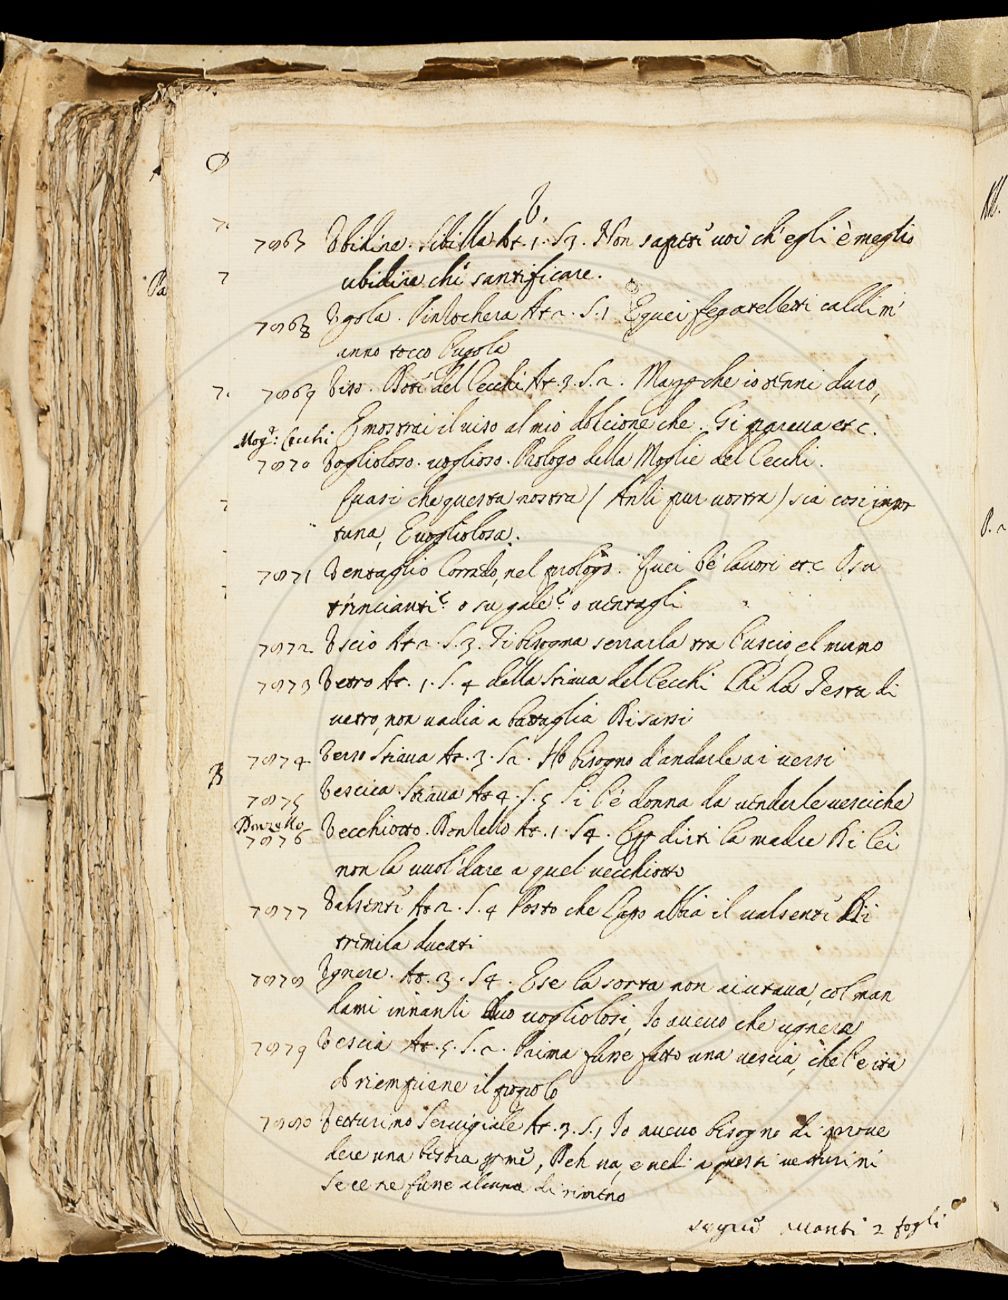 V
7967 Vbidire. Sibilla At. 1. S 3. Non sapeti voi ch'egli è meglio
ubidire chi santificare.
7968 Vgola. Pinzochera At 2. S. 1 E quei fegatelletti caldi m'
anno tocco l'ugola
7969 Viso. Doti del Cecchi At. 3. S. 2. Magg che io venni duro,
E mostrai il viso al mio dolcione che. Gi pareva etc.
Mogl: Cecchi
7970 Voglioloso. voglioso. Prologo della Moglie del Cecchi.
Quasi che questa nostra / Anzi pur vostra / sia così impor
tuna, E vogliolosa.
7971 Ventaglio Corrado, nel prologo. Quei bé lavori etc Usa
trincianti o su gale o ventagli
7972 Vscio At 2. S. 3. Ti bisogna serrarla tra l'uscio, el muro
7973 Vetro At. 1. S. 4 della Stiava del Cecchi Chi ha Testa di
vetro, non vadia a battaglia Di sassi
7974 Verso Stiava At. 3. S 2. Ho bisogno d'andarle a i versi
7975 Vescica. Stiava At 4. S. 5 Si l'é donna da venderle vesciche
Donzello
7976 Vecchiotto. Donzello At. 1. S 4. disti la madre Di lei
non la vuol dare a quel vecchiotto
7977 Valsenti At 2. S. 4 Posto che Lapo abbia il valsenti Di
trimila ducati
7978 Vgnere. At. 3. S 4. E se la sorta non aiutava, col man
darmi innanzi duo vogliolosi, Io avevo che ugnere
7979 Vescia At. 5. S. 2. Prima fune fatto una vescia, che l'é ita
A riempirne il popolo
7980 Vetturino Servigiale At. 3. S. 1 Io avevo bisogno di prove
dere una bestia p mé, Deh va, e vedi a questi vetturini
Se ce ne fune alcuna di rimeno
Segue Manti 2 fogli